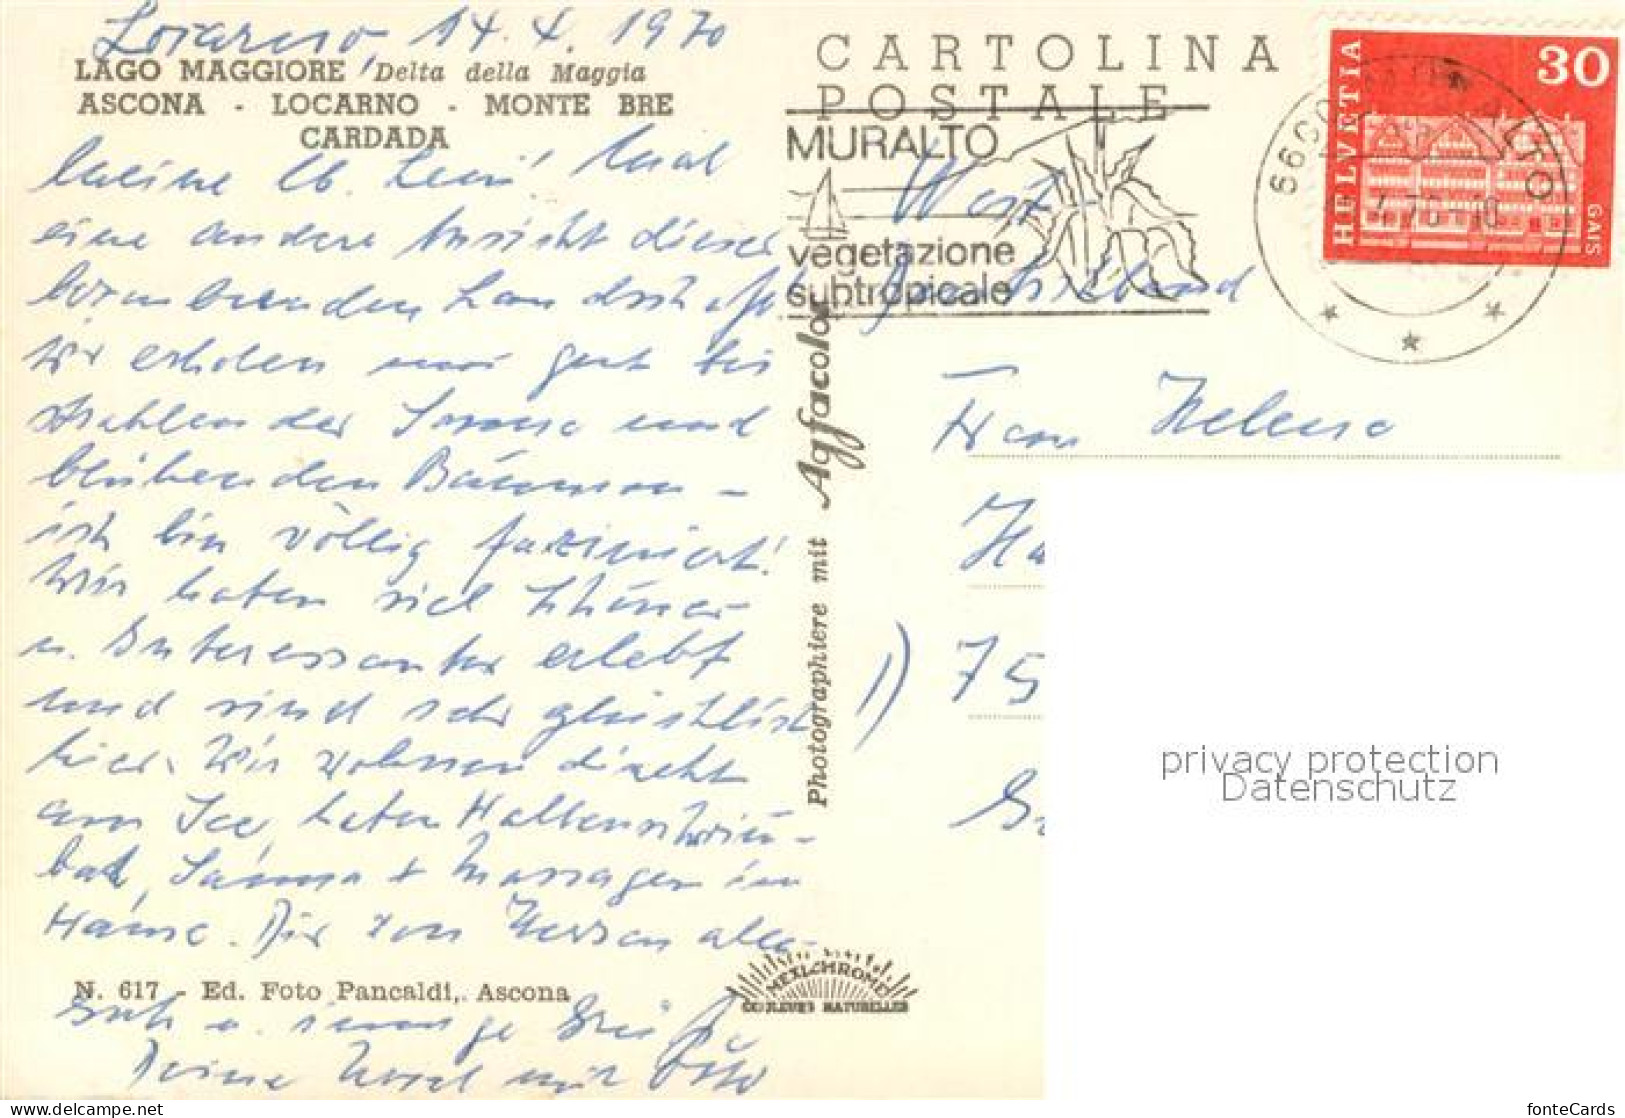 Locarno, 14. 4. 1970
LAGO MAGGIORE Delta della Maggia
ASCONA - LOCARNO - MONTE BRE
CARDADA
Meine lb. Leni! Noch
eine andere Ansicht dieser
berauschenden Landschaft
wir erholen uns gut bei
strahlender Sonne und
blühenden Bäumen –
ich bin völlig fasziniert!
Wir haben viel Schönes
u. Interessantes erlebt
und sind sehr glücklich
hier. Wir wohnen direkt
am See, haben Hallenschwimm-
bad, Sauna + Massagen im
Hause. Dir von Herzen alles
N. 617 - Ed. Foto Pancaldi, Ascona
Gute u. innige Grüße
Deine mit Otto
Photographiere mit Agfacolor
MEXICHROME
COULEURS NATURELLES
CARTOLINA
POSTALE
MURALTO
vegetazione
subtropicale
West-
Deutschland
HELVETIA
30
GAIS
6600 MURALTO
Frau Helene
Ha
1) 75
privacy protection
Datenschutz
fonteCards